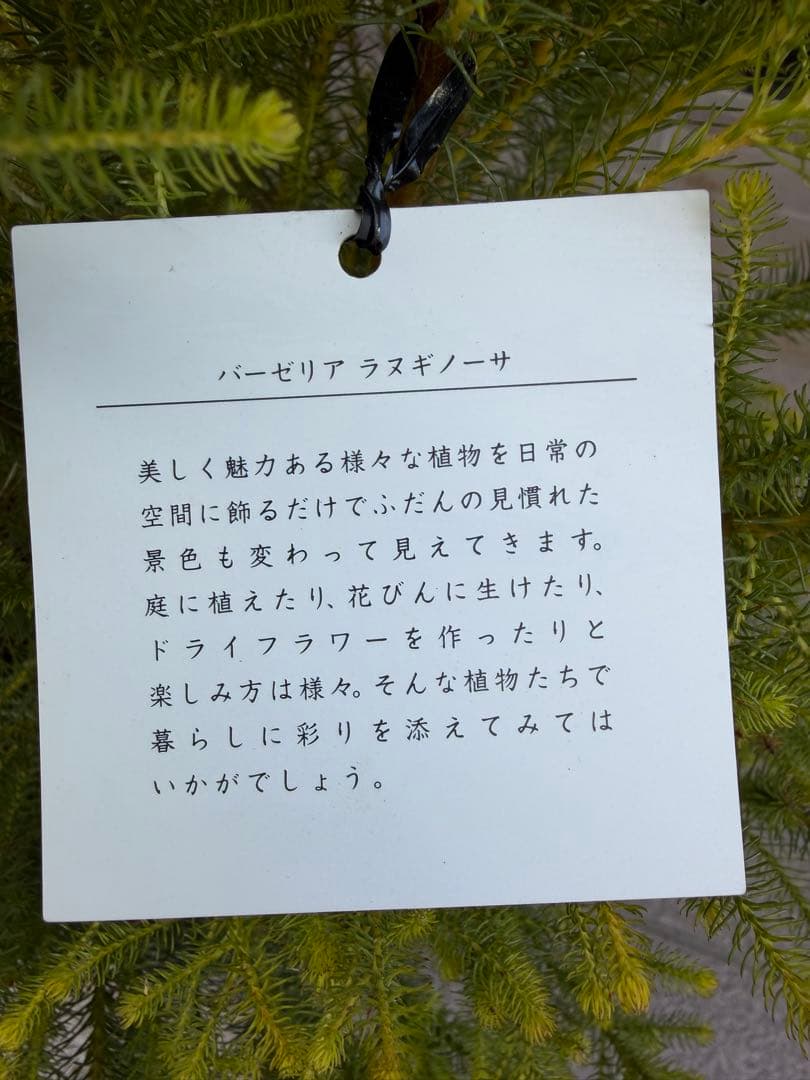 バーゼリア ラヌギノーサ
美しく魅力ある様々な植物を日常の
空間に飾るだけでふだんの見慣れた
景色も変わって見えてきます。
庭に植えたり、花びんに生けたり、
ドライフラワーを作ったりと
楽しみ方は様々。そんな植物たちで
暮らしに彩りを添えてみては
いかがでしょう。